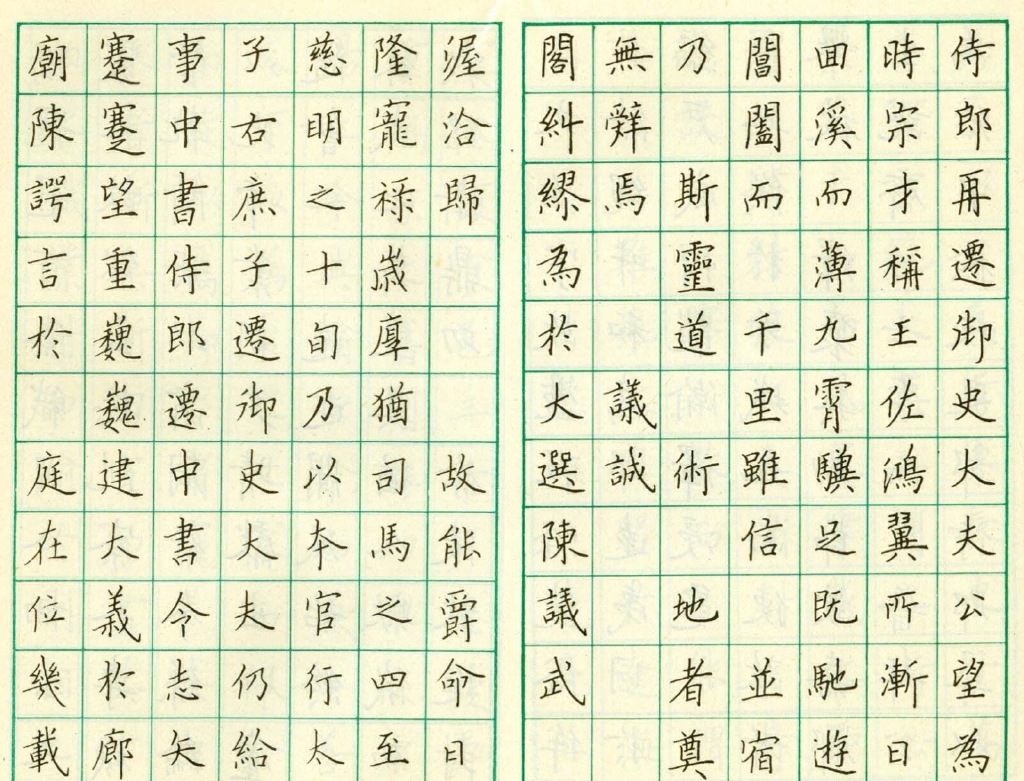 侍郎再遷御史大夫公望為
時宗才稱王佐鴻翼所漸日
回溪而薄九霄驥足既馳遊
閶闔而千里雖信並宿
乃斯靈道術地者奠
無辭焉議誠
閣糾繆為於大選陳議武
渥洽歸故能爵命日
隆寵祿歲厚猶司馬之四至
慈明之十旬乃以本官行太
子右庶子遷御史大夫仍給
事中書侍郎遷中書令志矢
蹇蹇望重巍巍建大義於廊
廟陳諤言於庭在位幾載